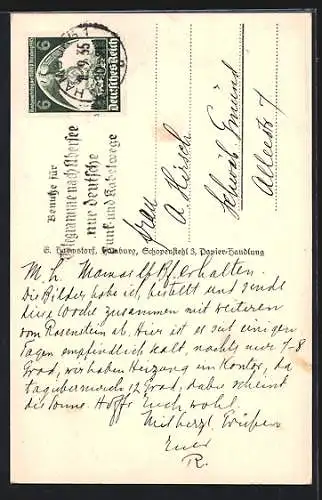 6 6
Deutsches Reich
HA
9.35
Benutze für
Telegramme nach Übersee
nur deutsche
Funk- und Kabelwege
Frau
A. Hirsch
Schwäb. Gmünd
Alleestr. 7
Hamburg, Schopenstehl 3, Papier-Handlung
M. L. Mama! Pk. erhalten.
Die Bilder habe ich bestellt und sende
diese Woche zusammen mit weiteren
vom Rosenstein ab. Hier ist es seit einigen
Tagen empfindlich kalt, nachts nur 7-8
Grad, wir haben Heizung im Kontor, da
tagsüber nur 12 Grad, dabei scheint
die Sonne. Hoffe Euch wohl.
Mit herzl. Grüßen
Euer
R.